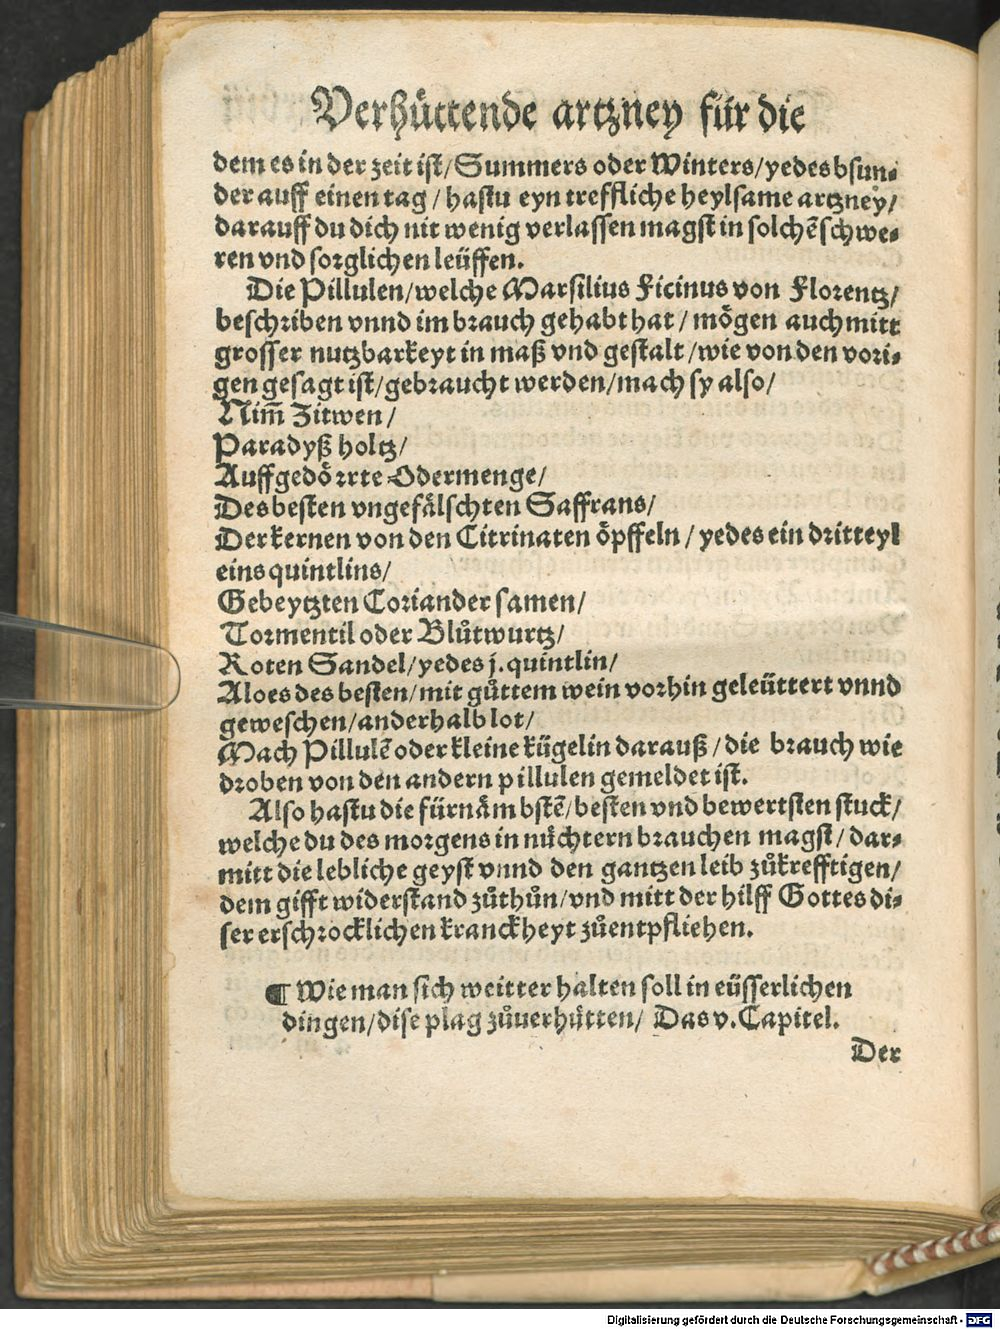 Verhüttende artzney für die
dem es in der zeit ist/Summers oder Winters/yedes bsun⸗
der auff einen tag / hastu eyn treffliche heylsame artzney/
darauff du dich nit wenig verlassen magst in solchẽ schwe⸗
ren vnd sorglichen leüffen.
Die Pillulen/welche Marsilius Ficinus von Florentz/
beschriben vnnd im brauch gehabt hat / mögen auch mitt
grosser nutzbarkeyt in maß vnd gestalt /wie von den vori⸗
gen gesagt ist/gebraucht werden/mach sy also/
Nim̃ Zitwen /
Paradyß holtz/
Auffgedörrte Odermenge/
Des besten vngefälschten Saffrans/
Der kernen von den Citrinaten öpffeln / yedes ein dritteyl
eins quintlins/
Gebeytzten Coriander samen/
Tormentil oder Blůtwurtz/
Roten Sandel/yedes j. quintlin/
Aloes des besten/mit gůttem wein vorhin geleüttert vnnd
geweschen/anderhalb lot/
Mach Pillulẽ oder kleine kügelin darauß /die brauch wie
droben von den andern pillulen gemeldet ist.
Also hastu die fürnämbstẽ/besten vnd bewertsten stuck/
welche du des morgens in nůchtern brauchen magst/ dar⸗
mitt die lebliche geyst vnnd den gantzen leib zůkrefftigen/
dem gifft widerstand zůthůn/vnd mitt der hilff Gottes di⸗
ser erschrocklichen kranckheyt zůentpfliehen.
¶ Wie man sich weitter halten soll in eüsserlichen
dingen/dise plag zůuerhütten/ Das v. Capitel.
Der
Digitalisierung gefördert durch die Deutsche Forschungsgemeinschaft - DFG